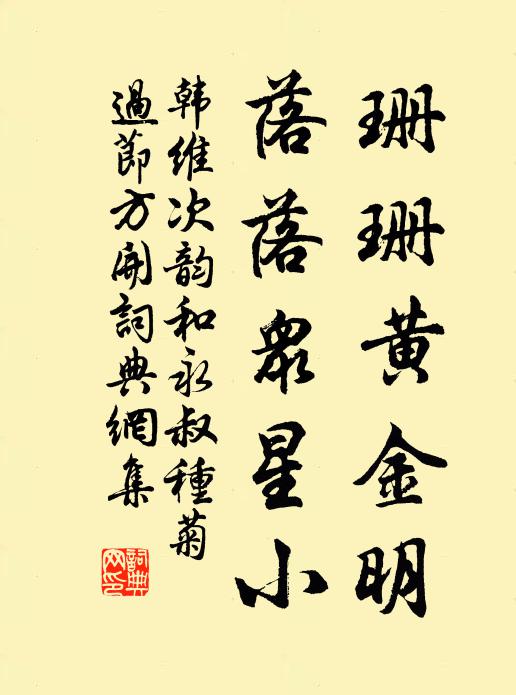 珊珊黃金明
落落眾星小
韩維次韵和永叔種菊
過節方開詞典網集
詞典
网印